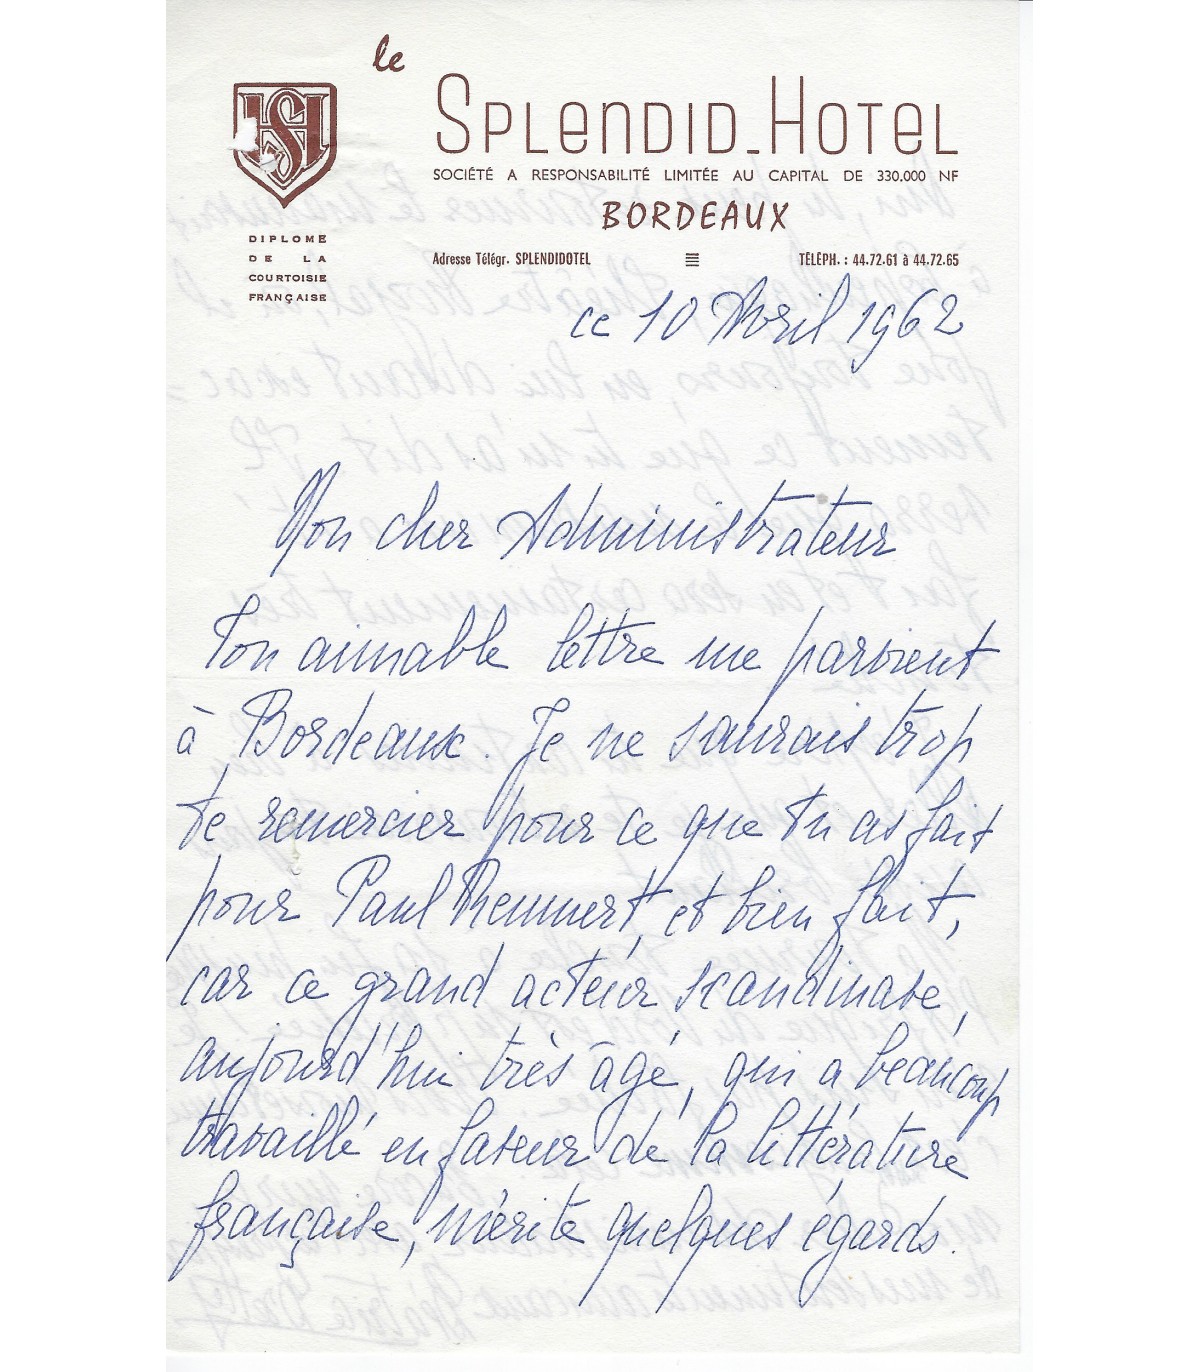 le
SPLENDID-HOTEL
SOCIÉTÉ A RESPONSABILITÉ LIMITÉE AU CAPITAL DE 330.000 NF
BORDEAUX
Adresse Télégr. SPLENDIDOTEL
TÉLÉPH. : 44.72.61 à 44.72.65
SH
DIPLOME
DE LA
COURTOISIE
FRANÇAISE
ce 10 Avril 1962
Mon cher Administrateur
Ton aimable lettre me parvient
à Bordeaux. Je ne saurais trop
te remercier pour ce que tu as fait
pour Paul Reumert, et bien fait,
car ce grand acteur scandinave,
aujourd'hui très âgé, qui a beaucoup
travaillé en faveur de la littérature
française, mérite quelques égards.